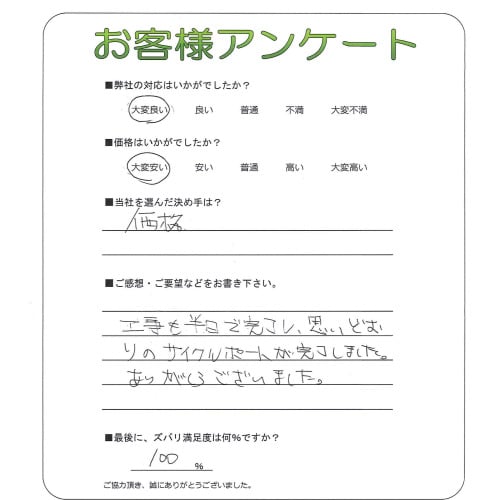 お客様アンケート
■弊社の対応はいかがでしたか？
大変良い 良い 普通 不満 大変不満
■価格はいかがでしたか？
大変安い 安い 普通 高い 大変高い
■当社を選んだ決め手は？
価格
■ご感想・ご要望などをお書き下さい。
工事も半日で完了し、思いどお
りのサイクルポートが完了しました。
ありがとうございました。
■最後に、ズバリ満足度は何%ですか？
100 %
ご協力頂き、誠にありがとうございました。